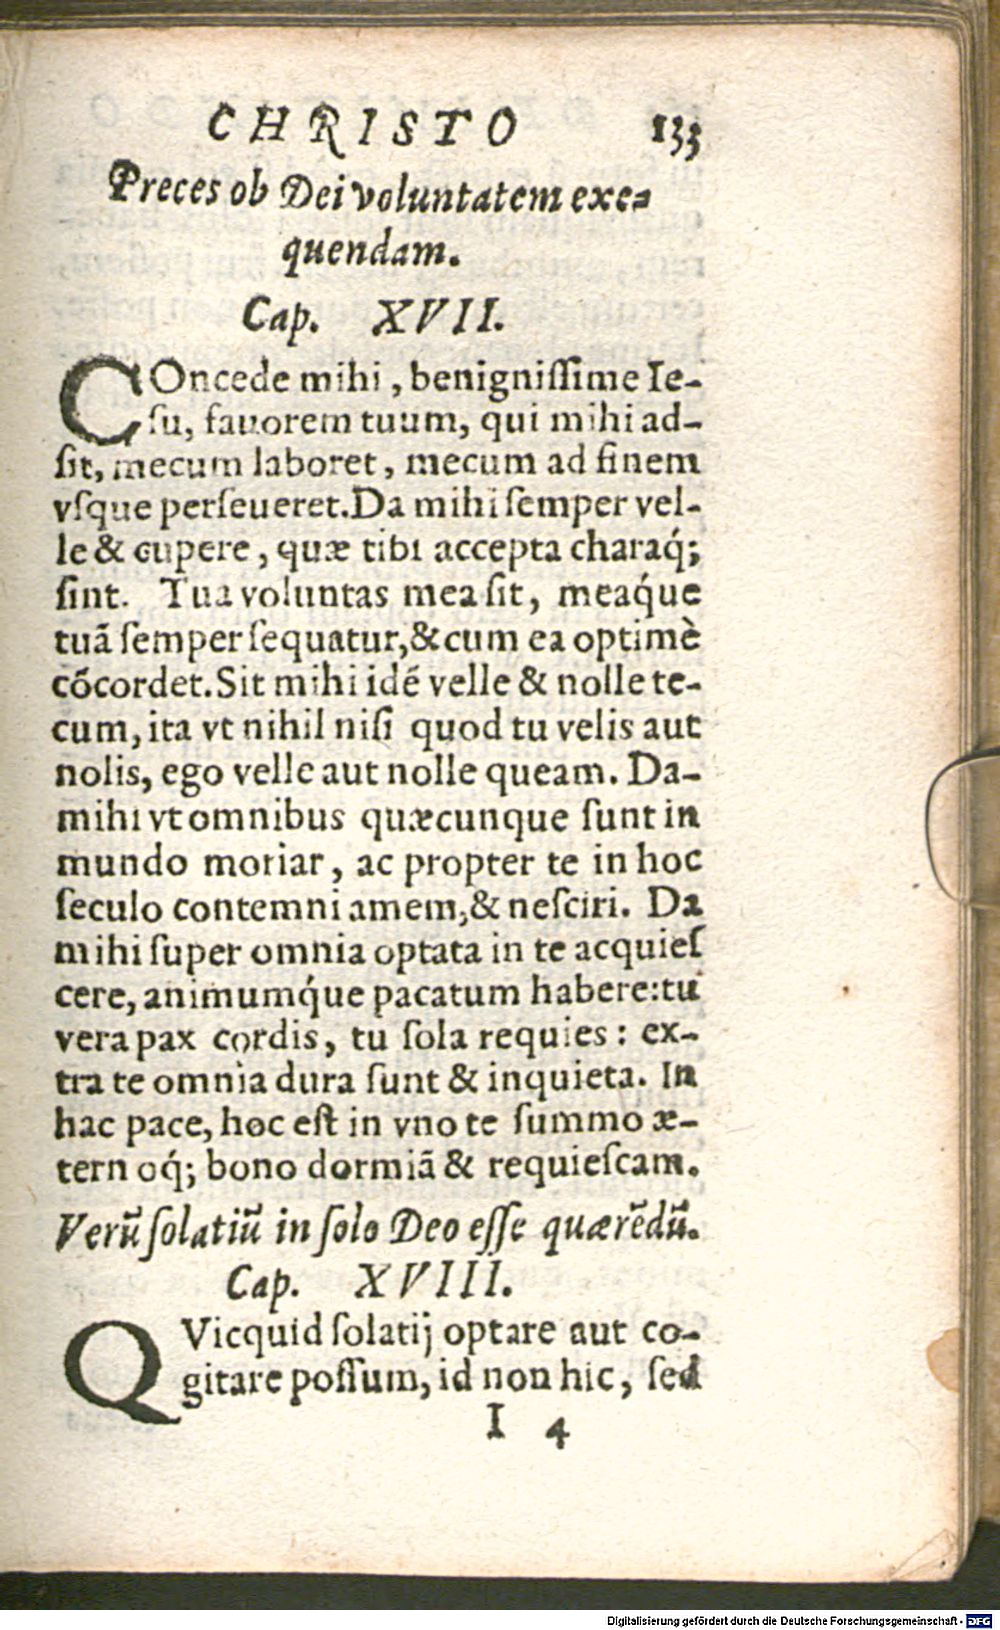 CHRISTO 133
Preces ob Dei voluntatem exe-
quendam.
Cap. XVII.
COncede mihi, benigniſſime Ie-
ſu, fauorem tuum, qui mihi ad-
ſit, mecum laboret, mecum ad finem
vſque perſeueret. Da mihi ſemper vel-
le & cupere, quæ tibi accepta charaq́;
ſint. Tua voluntas mea ſit, meaq́ue
tuã ſemper ſequatur, & cum ea optimè
cõcordet. Sit mihi idẽ velle & nolle te-
cum, ita vt nihil niſi quod tu velis aut
nolis, ego velle aut nolle queam. Da-
mihi vt omnibus quæcunque ſunt in
mundo moriar, ac propter te in hoc
ſeculo contemni amem, & neſciri. Da
mihi ſuper omnia optata in te acquieſ
cere, animumq́ue pacatum habere: tu
vera pax cordis, tu ſola requies: ex-
tra te omnia dura ſunt & inquieta. In
hac pace, hoc eſt in vno te ſummo æ-
tern oq́; bono dormiã & requieſcam.
Verũ ſolatiũ in ſolo Deo eſſe quærẽdũ.
Cap. XVIII.
QVicquid ſolatij optare aut co-
gitare poſſum, id non hic, ſed
I 4
Digitalisierung gefördert durch die Deutsche Forschungsgemeinschaft - DFG